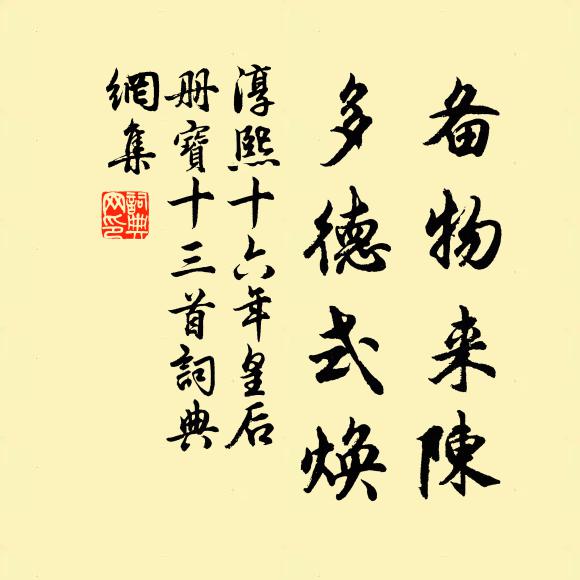 备物来陳
多德式焕
淳熙十六年皇后
册寶十三首詞典
網集
詞典網印